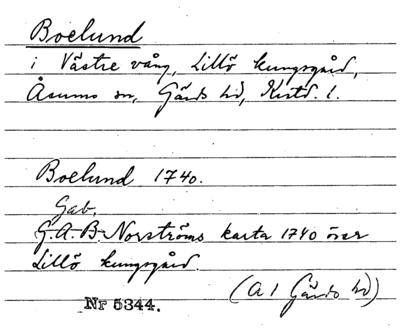 Boelund
i Västre vång, Lillö kungsgård,
Åsums sn, Gärds hd, Kristd. l.
Boelund 1740.
Gab.
G. A. B. Norströms karta 1740 över
Lillö kungsgård.
(A 1 Gärds hd)
Nr 5344.